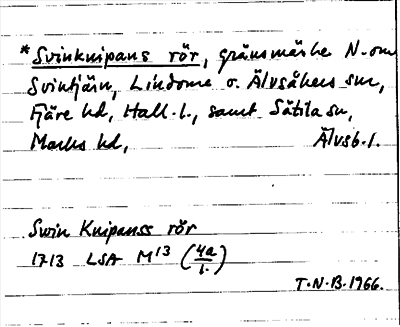 * Svinknipans rör, gränsmärke N. om
Svintjärn, Lindome o. Älvsåkers snr,
Fjäre hd, Hall. l., samt Sätila sn,
Marks hd, Älvsb. l.
Swin Knipanss rör
1713 LSA M 13 (4a/1.)
T.N.B. 1966.